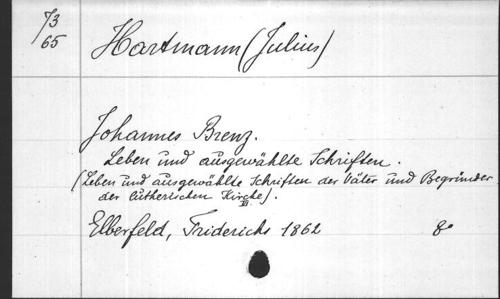 73
65
Hartmann (Julius)
Johannes Brenz.
Leben und ausgewählte Schriften.
(Leben und ausgewählte Schriften der Väter und Begründer
der lutherischen Kirche).
VI.
Elberfeld, Friderichs 1862 8°